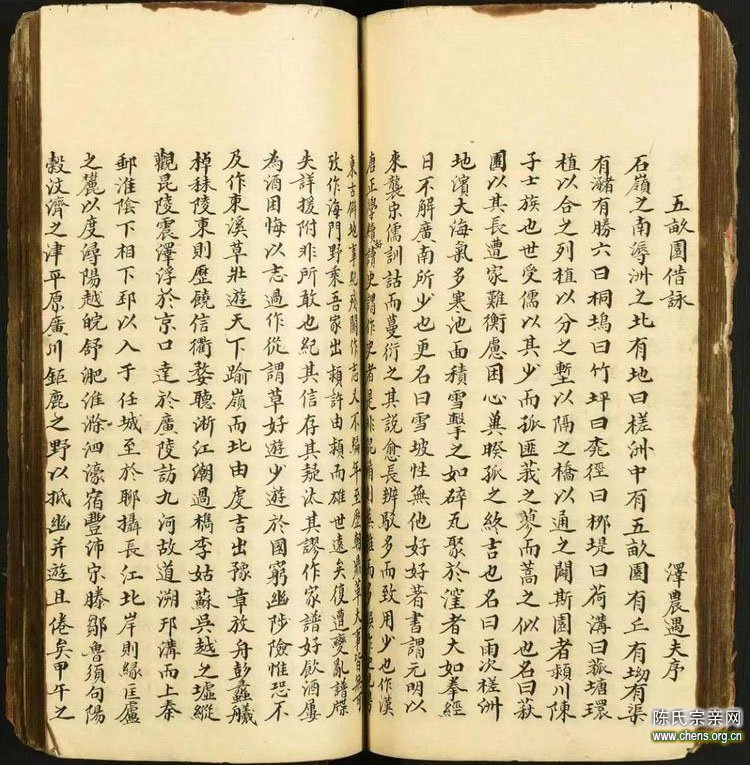 五畝園借詠
澤農遇夫序
石嶺之南溽洲之北有地曰槎洲中有五畝園有丘有坳有渠
有瀦有勝六曰桐塢曰竹坪曰堯徑曰梛堤曰荷溝曰菰塘環
植以合之列植以分之塹以隔之橋以通之闢斯園者潁川陳
子士族也世受儒以其少而孤匪莪之蓼而蒿之似也名曰萩
園以其長遭家難衡慮困心冀暌孤之終吉也名曰雨次槎洲
地濱大海氣多寒池面積雪擊之如碎瓦聚於窪者大如拳經
日不解廣南所少也更名曰雪坡性無他好好著書謂元明以
來襲宋儒訓詁而蔓衍之其說愈長辨駁多而致用少也作漢
唐正學
東古僻地事紀殘闕作志大不
攷作海門野乘吾家出潁許由潁而雄世遠矣復遭變亂譜牒
失詳援附非所敢也紀其信存其疑汰其謬作家譜好飲酒屢
為酒困悔以志過作從謂草好遊少遊於國窮幽陟險惟恐不
及作東溪草壯遊天下踰嶺而北由虔吉出豫章放舟彭蠡艤
棹秣陵東則歷饒信衢婺聽浙江潮過檇李姑蘇吳越之墟縱
觀昆陵震澤浮於京口達於廣陵訪九河故道溯邗溝而上秦
郵淮陰下相下邳以入于任城至於聊攝長江北岸則緣匡廬
之麓以度潯陽越皖舒淝淮滁泗濠宿豐沛宗滕鄒魯須句陽
穀汶濟之津平原廣川鉅鹿之野以抵幽并遊且倦矣甲午之
陈氏宗亲网
www.chens.org.cn